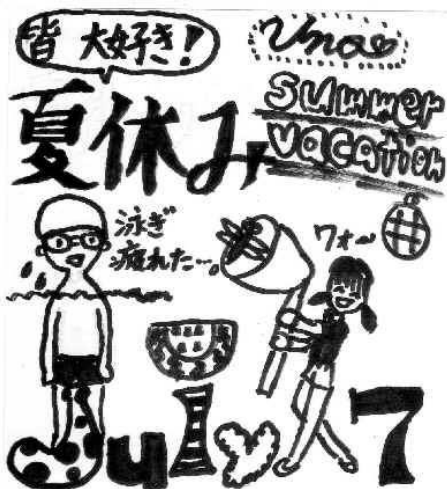 皆 大好き!
夏休み
summer
vacation
泳ぎ
疲れた…。
ワォ~
July 7